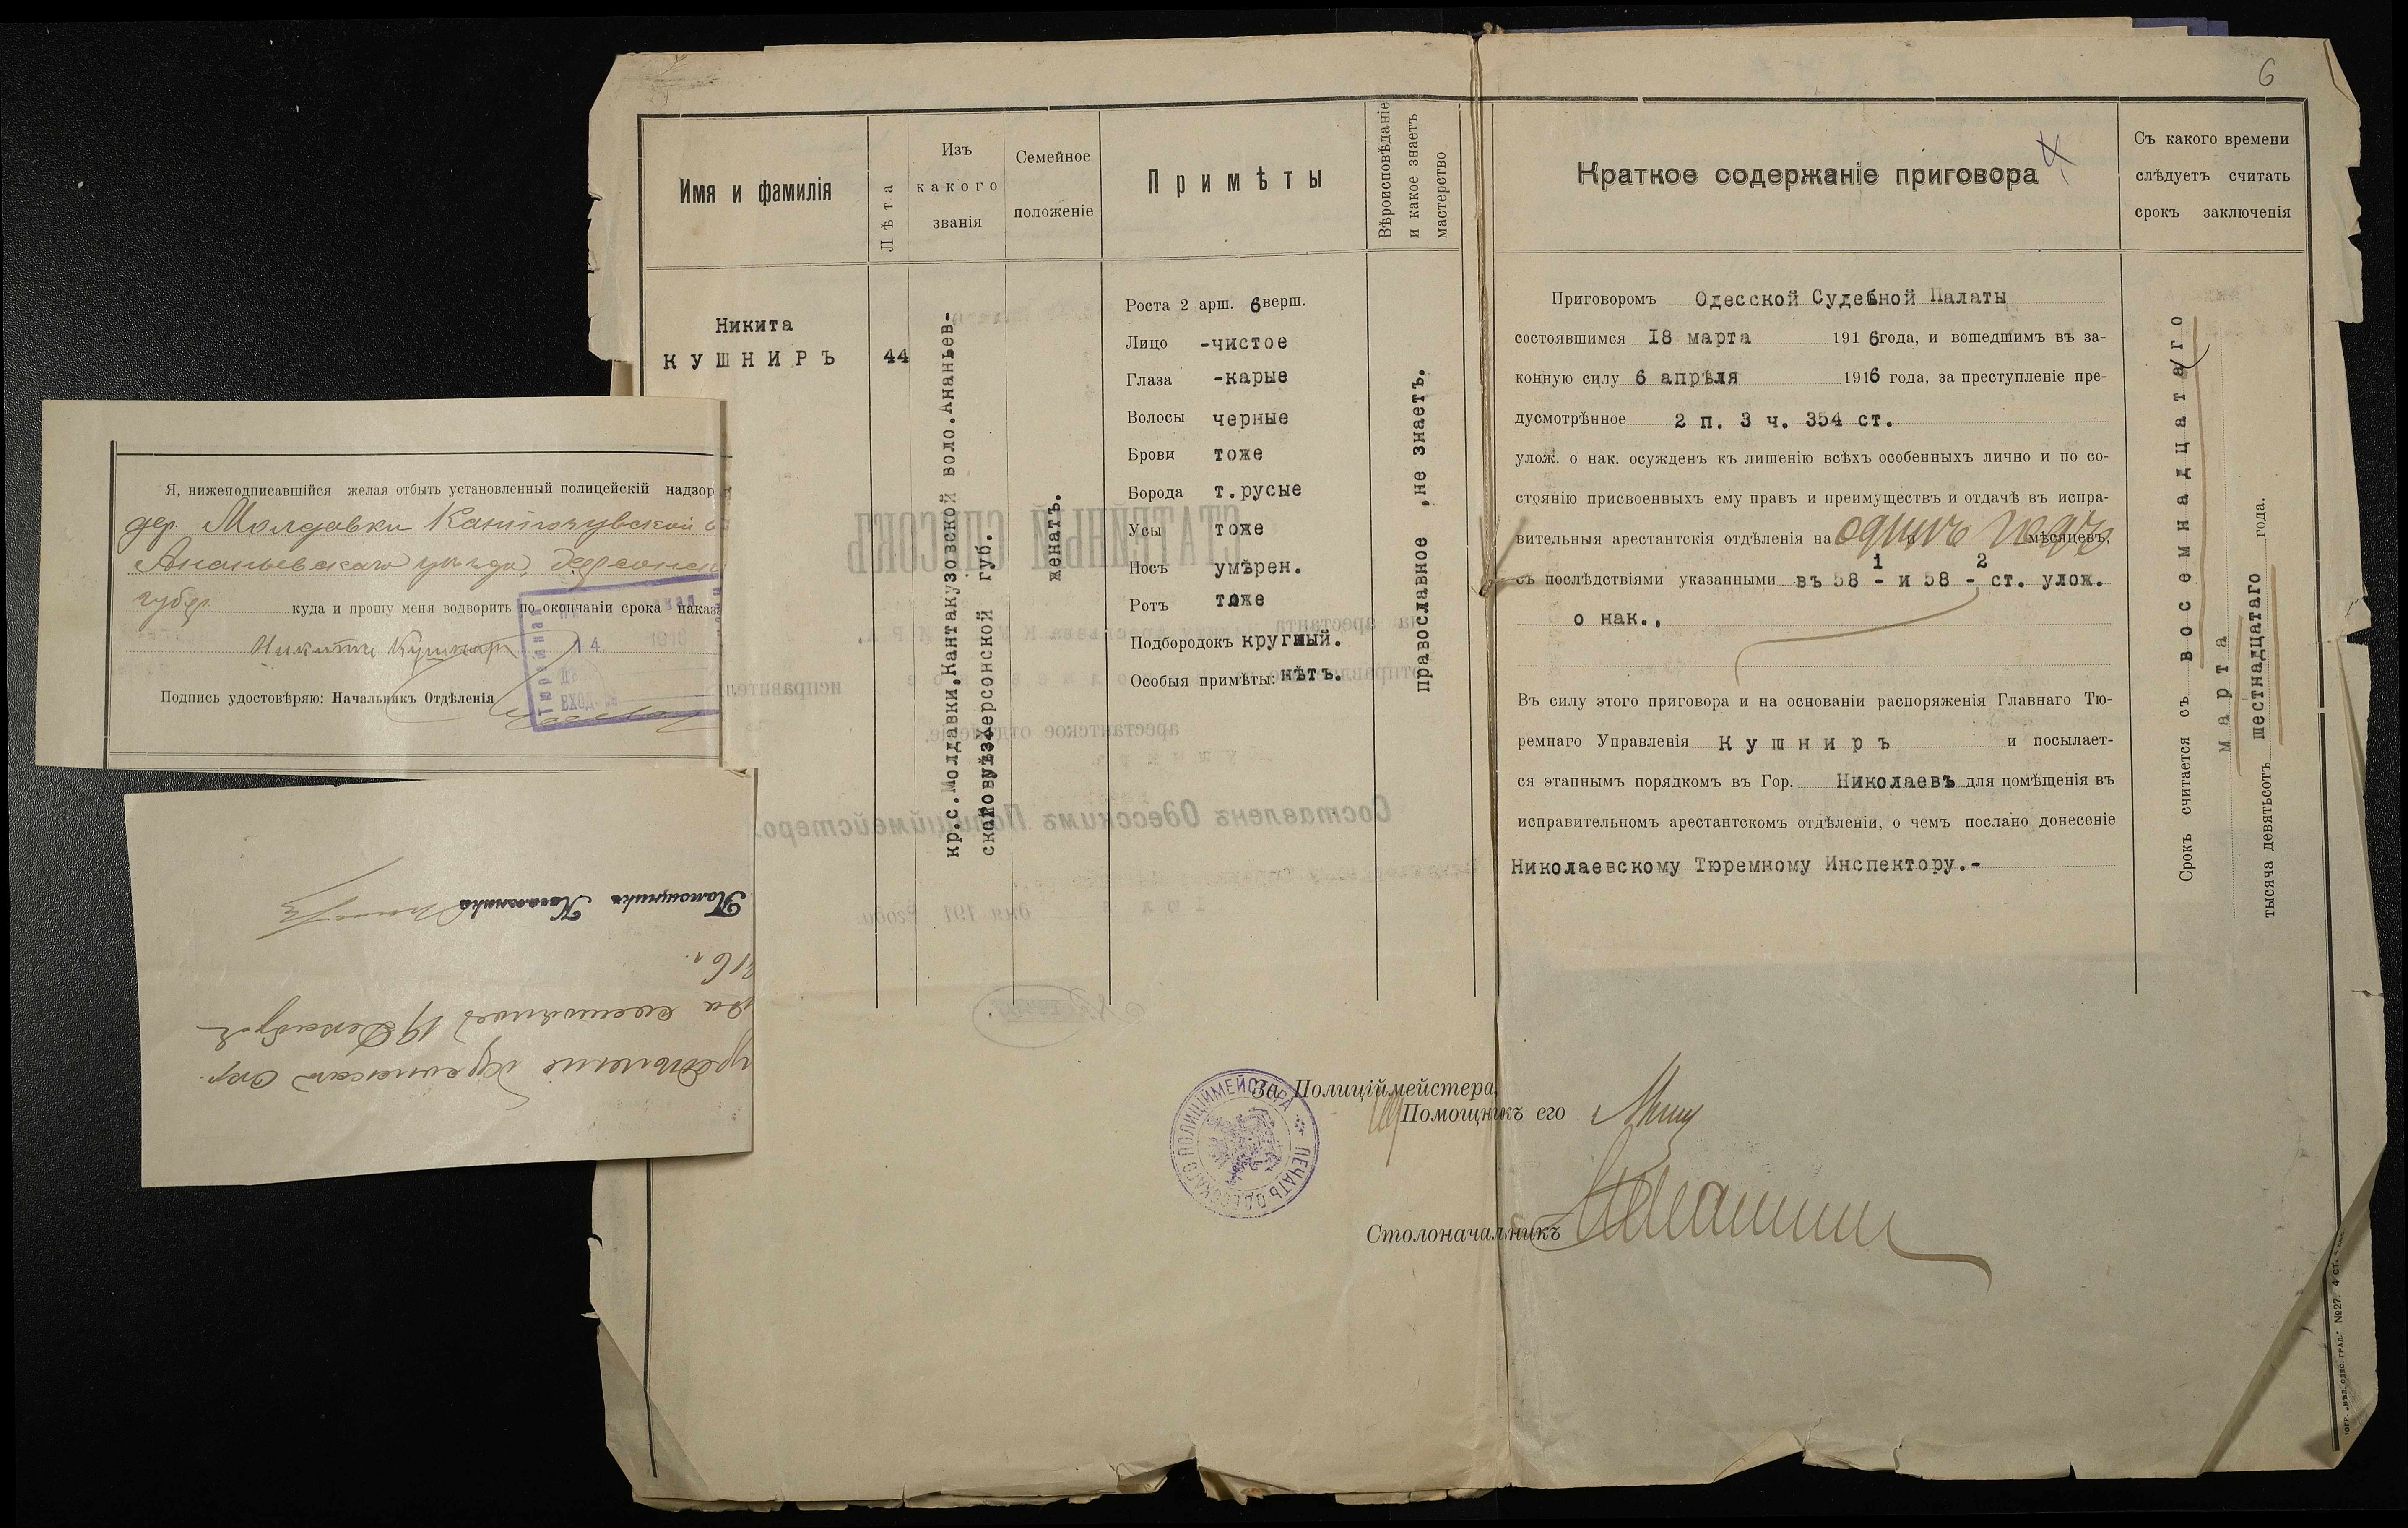 6
Имя и фамилія
Лѣта
Изъ
какого
званія
Семейное
положеніе
Примѣты
Вѣроисповѣданіе
и какое знаетъ
мастерство
Краткое содержаніе приговора
Съ какого времени
слѣдуетъ считать
срокъ заключенія
Никита
КУШНИРЪ
44
кр.с.Молдавки,Кантакузовской воло.Ананьев-
женатъ.
Роста 2 арш. 6 верш.
Лицо -чистое
Глаза -карые
Волосы черные
Брови тоже
Борода т.русые
Усы тоже
Носъ умѣрен.
Ротъ тоже
Подбородокъ круглый.
Особыя примѣты: нѣтъ.
православное ,не знаетъ.
Приговоромъ Одесской Судебной Палаты
состоявшимся 18 марта 1916 года, и вошедшимъ въ за-
конную силу 6 апрѣля 1916 года, за преступленіе пре-
дусмотрѣнное 2 п. 3 ч. 354 ст.
улож. о нак. осужденъ къ лишенію всѣхъ особенныхъ лично и по со-
стоянію присвоенныхъ ему правъ и преимуществъ и отдачѣ въ испра-
вительныя арестантскія отдѣленія на одинъ годъ мѣсяцевъ,
1 2
съ послѣдствіями указанными въ 58 - и 58 - ст. улож.
о нак.,
Въ силу этого приговора и на основаніи распоряженія Главнаго Тю-
ремнаго Управленія Кушниръ и посылает-
ся этапнымъ порядкомъ въ Гор. Николаевъ для помѣщенія въ
исправительномъ арестантскомъ отдѣленіи, о чемъ послано донесеніе
Николаевскому Тюремному Инспектору.-
Срокъ считается съ восемнадцатаго
марта
тысяча девятьсотъ шестнадцатаго года.
Я, нижеподписавшійся желая отбыть установленный полицейскій надзор
дер. Молдавки Кантокузвской в
Ананьевскаго уѣзда, Херсонск
губер. куда и прошу меня водворить по окончаніи срока наказ
Никита Кушнир
14 191
ВХОД.
Подпись удостовѣряю: Начальникъ Отдѣленія
Помощникъ Начальника
916 г.
состоянію 19 Декабря
Херсонскаго Окр.
За Полиційместера,
Помощникъ его
ПЕЧАТЬ ОДЕССКАГО ПОЛИЦІЙМЕЙСТЕРА
Столоначальникъ
СТАТЕЙНЫЙ СПИСОКЪ
на арестанта
арестантское отдѣленіе.
Составленъ Одесскимъ Полиціймейстеро
дня 191 года.
№27.